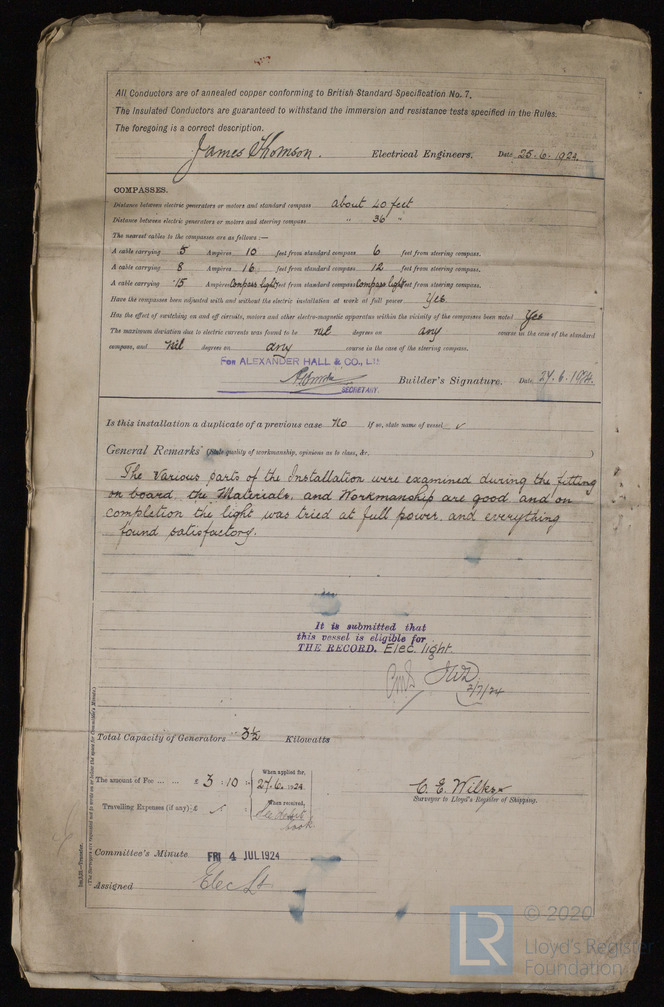 All Conductors are of annealed copper conforming to British Standard Specification No. 7.
The Insulated Conductors are guaranteed to withstand the immersion and resistance tests specified in the Rules.
The foregoing is a correct description.
James Thomson. Electrical Engineers. Date 25.6.1924.
COMPASSES.
Distance between electric generators or motors and standard compass about 40 feet
Distance between electric generators or motors and steering compass " 36 "
The nearest cables to the compasses are as follows:—
A cable carrying 5 Amperes 10 feet from standard compass 6 feet from steering compass.
A cable carrying 8 Amperes 16 feet from standard compass 12 feet from steering compass.
A cable carrying .15 Amperes Compass light feet from standard compass Compass light feet from steering compass.
Have the compasses been adjusted with and without the electric installation at work at full power Yes.
Has the effect of switching on and off circuits, motors and other electro-magnetic apparatus within the vicinity of the compasses been noted Yes
The maximum deviation due to electric currents was found to be nil degrees on any course in the case of the standard
compass, and nil degrees on any course in the case of the steering compass.
FOR ALEXANDER HALL & CO., LTD
SECRETARY. Builder's Signature. Date 27.6.1924.
Is this installation a duplicate of a previous case No If so, state name of vessel
General Remarks (State quality of workmanship, opinions as to class, &c.
The various parts of the Installation were examined during the fitting
on board, the Materials, and Workmanship are good and on
completion the light was tried at full power and everything
found satisfactory.
It is submitted that
this vessel is eligible for
THE RECORD. Elec. light.
2/7/24
Total Capacity of Generators 3½ Kilowatts
The amount of Fee ... ... £ 3 : 10 : When applied for, 27.6.1924
Travelling Expenses (if any) £ When received,
C. E. Wilkes
Surveyor to Lloyd's Register of Shipping.
Committee's Minute FRI 4 JUL 1924
Assigned Elec Lt
(The Surveyors are requested not to write on or below the space for Committee's Minute.)
LR
© 2020
Lloyd's Register
Foundation